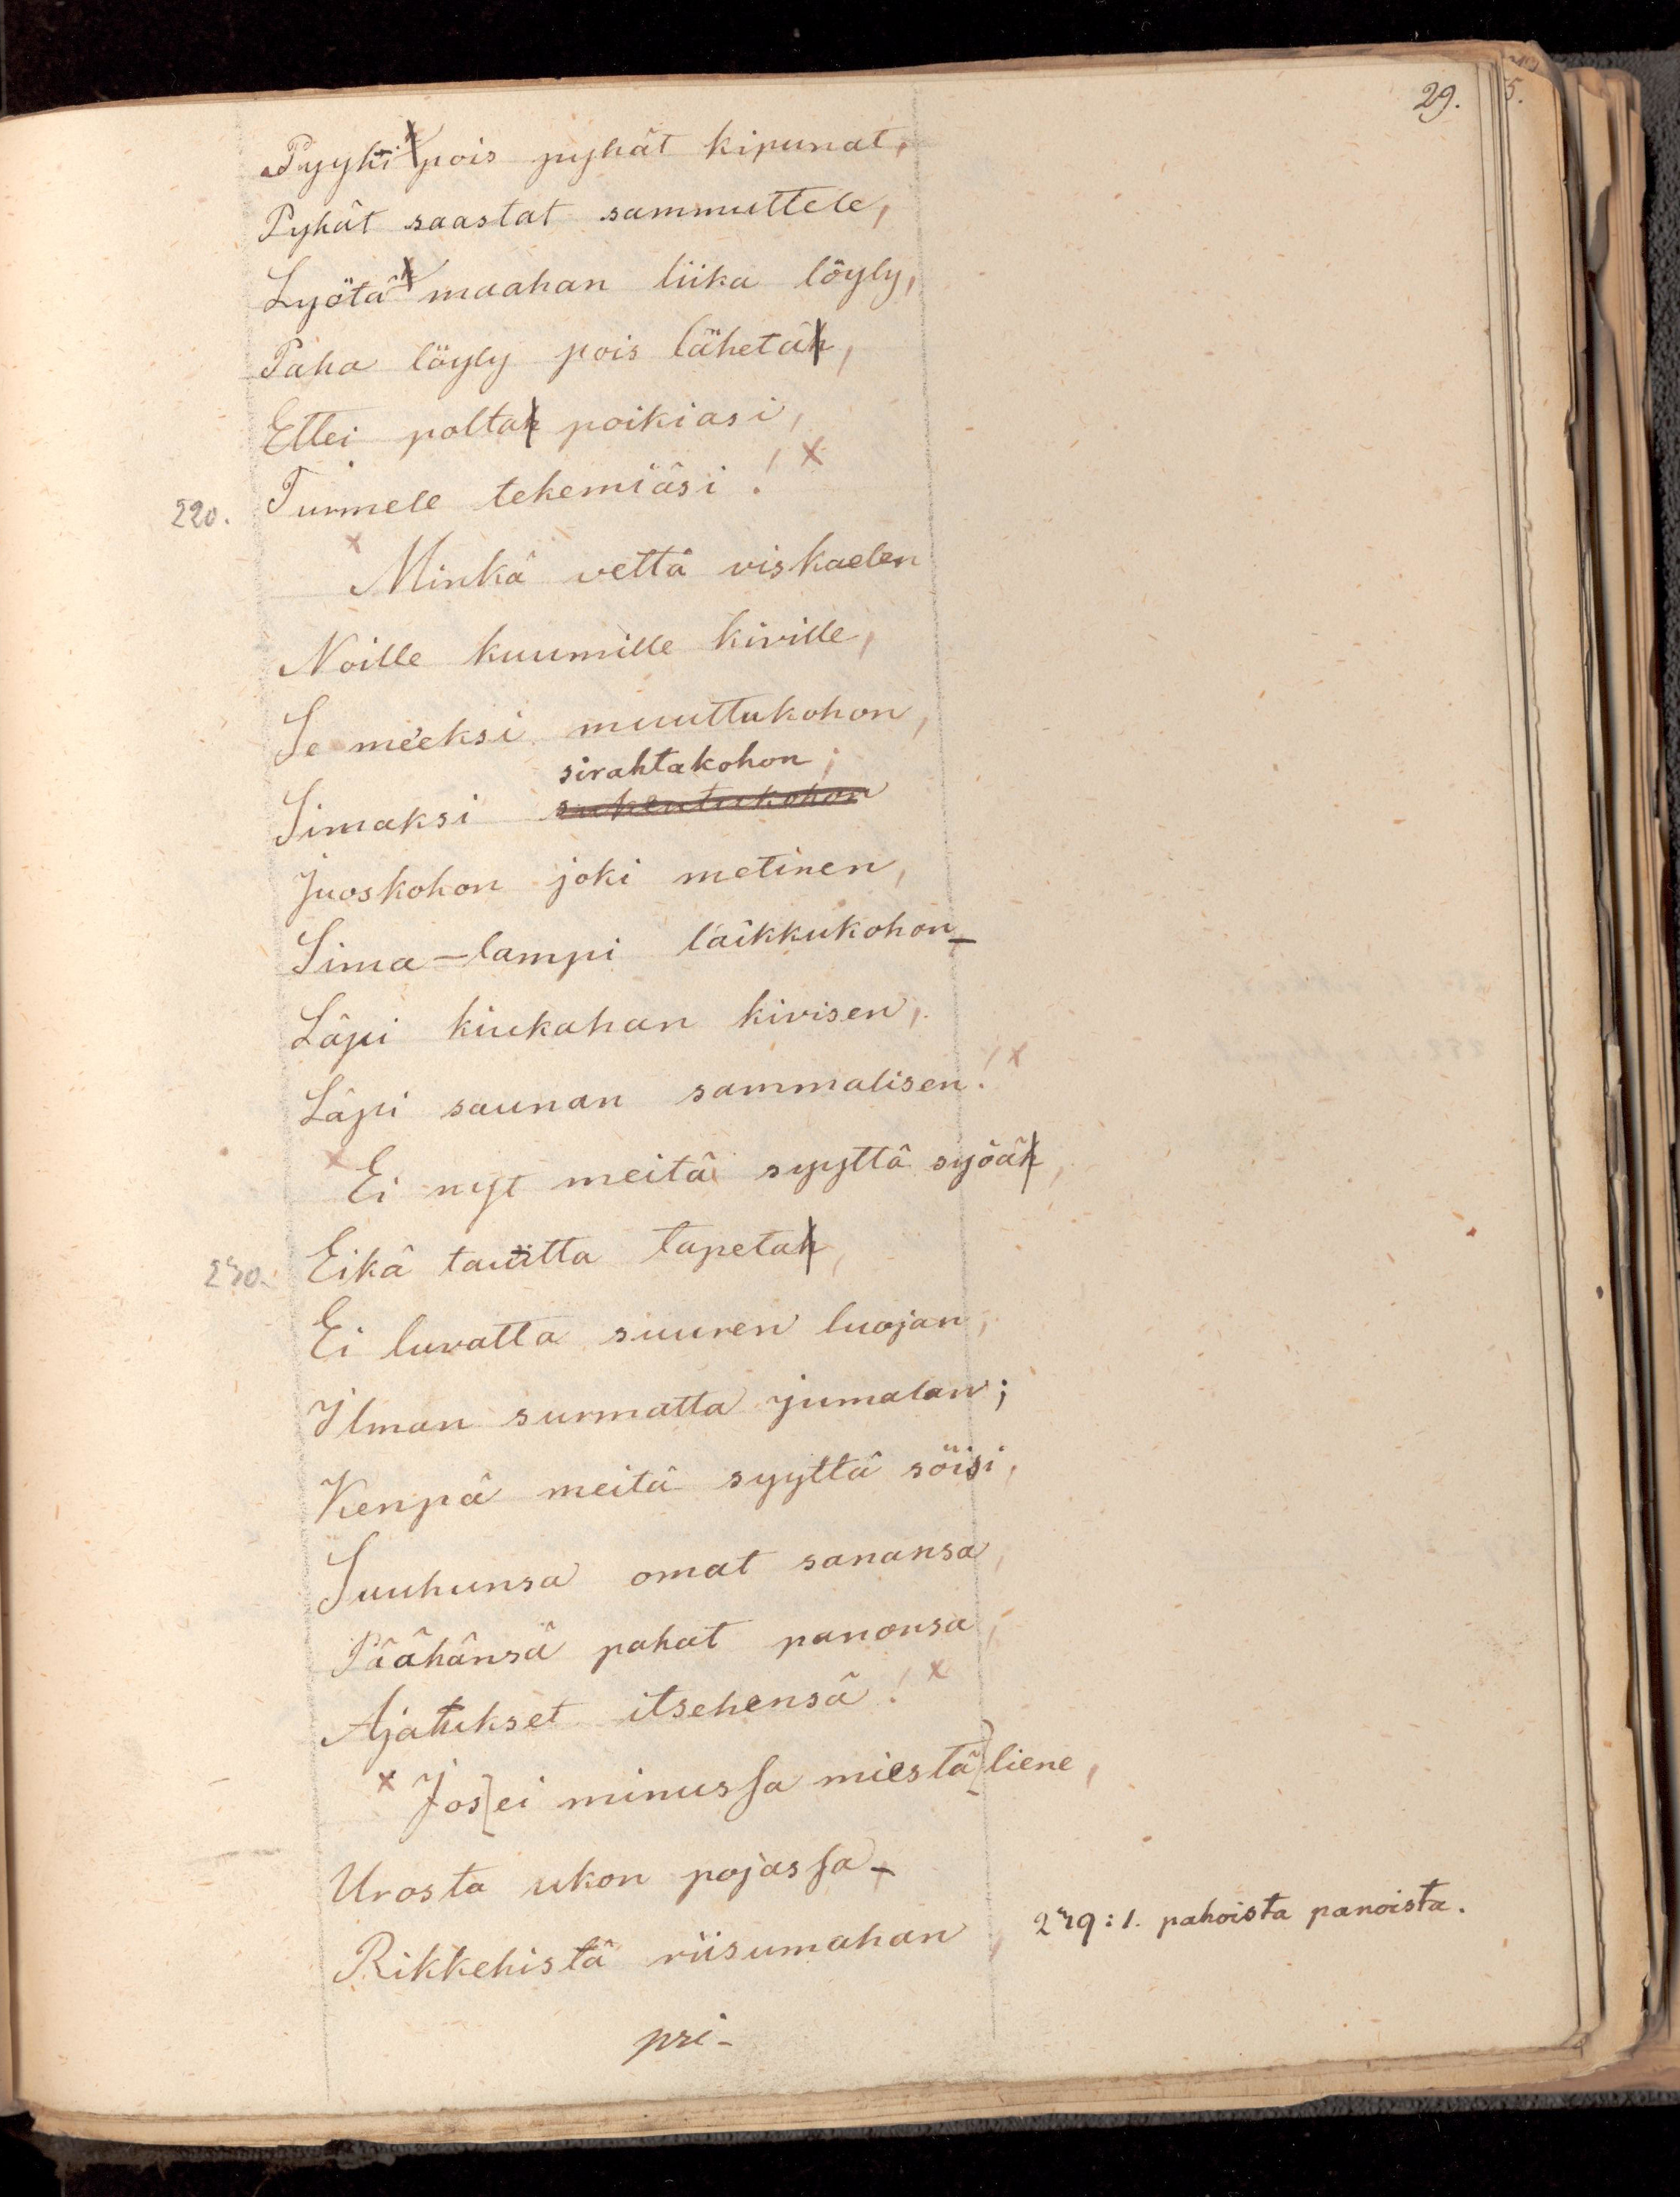 29.
Pyyhi pois pyhät kipunat,
Pyhät saastat sammuttele,
Lyötä maahan liika löyly,
Paha löyly pois lähetäh,
Ettei poltah poikiasi,
220. Turmele tekemiäsi! x
x Minkä vettä viskaelen
Noille kuumille kiville,
Se meeksi muuttukohon,
sirahtakohon;
Simaksi
Juoskohon joki metinen,
Sima-lampi laikkukohon-
Läpi kiukahan kivisen,
Läpi saunan sammalisen! x
x Ei nyt meitä syyttä syöäh,
230. Eikä tauitta tapetah,
Ei luvatta suuren luojan,
Ilman surmatta jumalan;
Kenpä meitä syyttä söisi,
Suuhunsa omat sanansa,
Päähänsä pahat panonsa,
Ajatukset itsehensä! x
x Jos [ei minussa miestä] liene,
Urosta ukon pojassa-
Rikkehistä riisumahan, 239: 1. pahoista panoista.
pri-